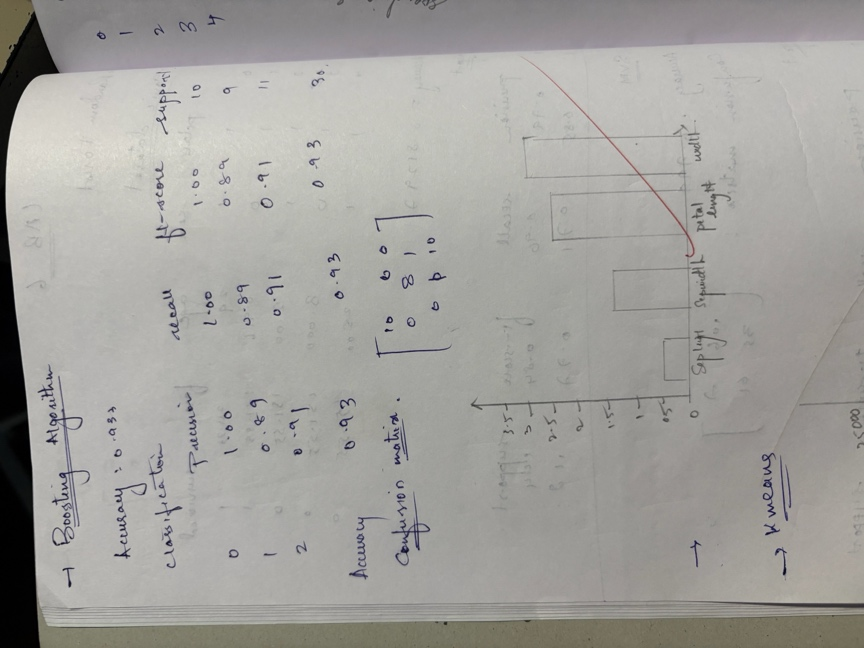 → Boosting Algorithm
Accuracy : 0.933
Classification
Precision recall f1-score support
0 1.00 1.00 1.00 10
1 0.89 0.89 0.89 9
2 0.91 0.91 0.91 11
Accuracy 0.93 0.93 0.93 30.
Confusion matrix.
10 0 0
0 8 1
0 1 10
3.5
3
2.5
2
1.5
1
0.5
0
petal length
width.
→
→ K means
0
1
2
3
4
25000